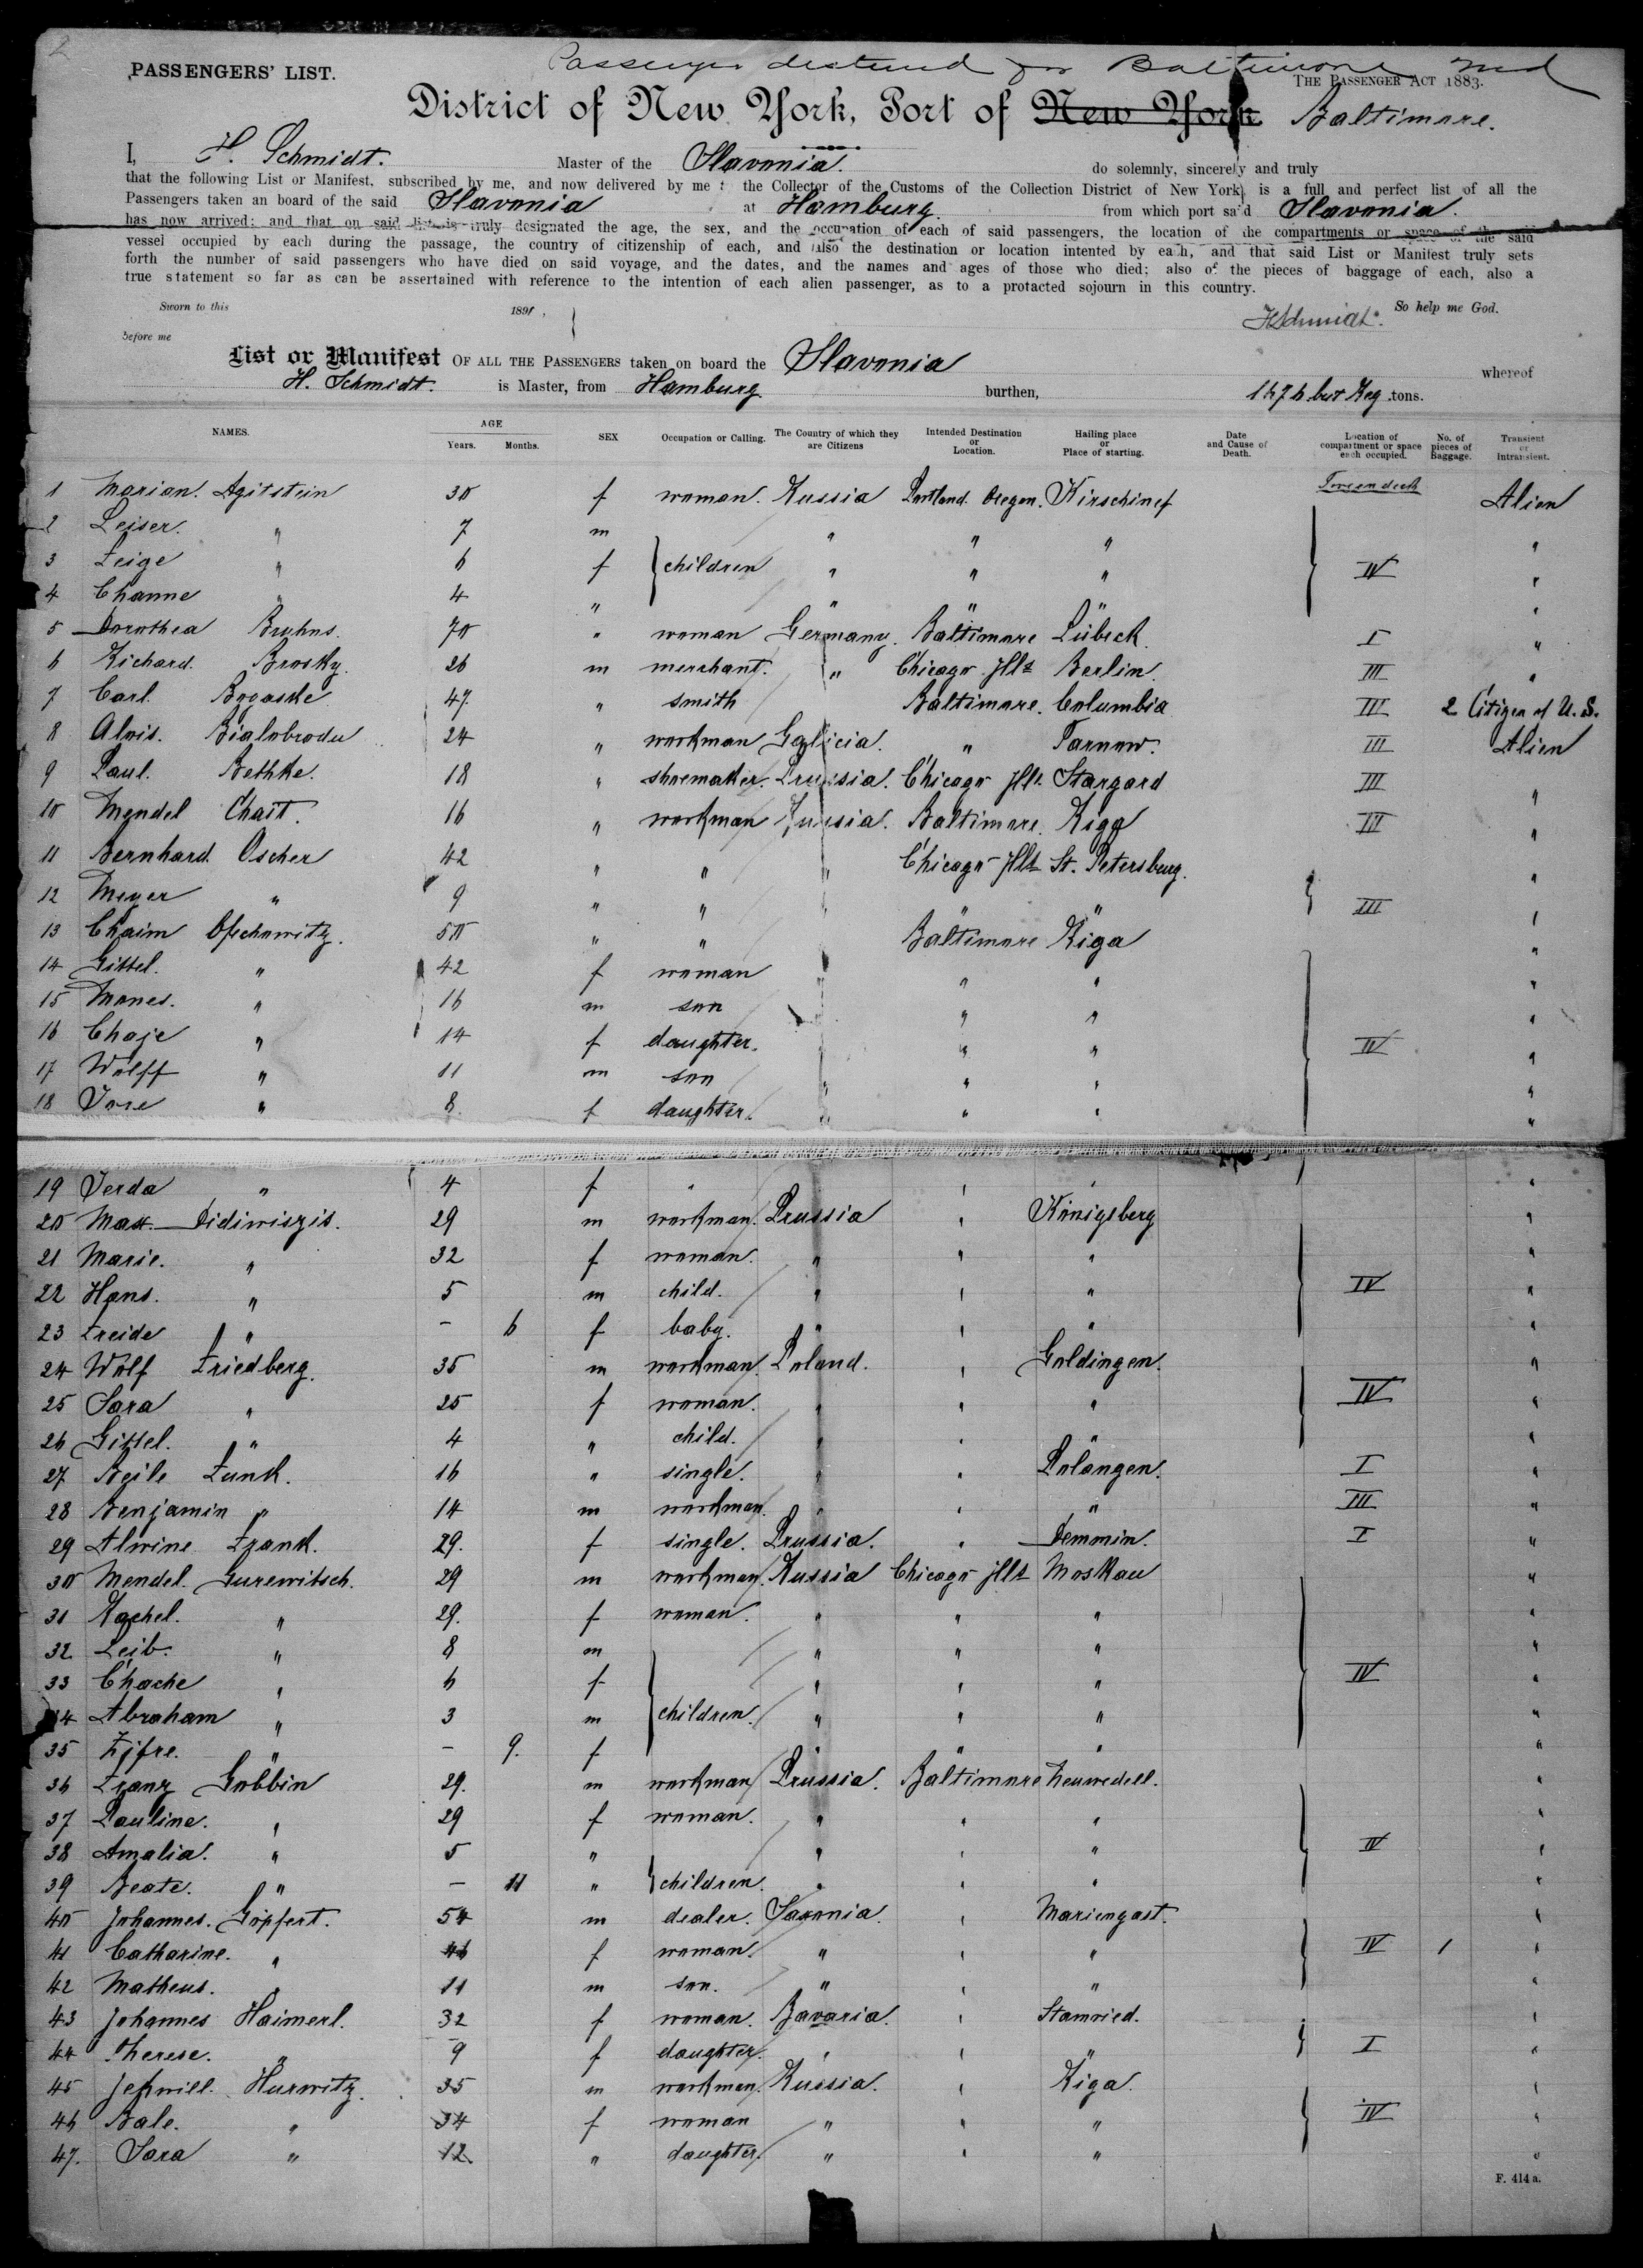 2
Passenger destined for Baltimore Md
PASSENGERS' LIST.
THE PASSENGER ACT 1883.
District of New York, Port of New York Baltimore.
I, H. Schmidt. Master of the Slavonia. do solemnly, sincerely and truly
that the following List or Manifest, subscribed by me, and now delivered by me t the Collector of the Customs of the Collection District of New York is a full and perfect list of all the
Passengers taken an board of the said Slavonia at Hamburg. from which port said Slavonia.
has now arrived; and that on said list is truly designated the age, the sex, and the occupation of each of said passengers, the location of the compartments or space of the said
vessel occupied by each during the passage, the country of citizenship of each, and also the destination or location intented by each, and that said List or Manifest truly sets
forth the number of said passengers who have died on said voyage, and the dates, and the names and ages of those who died; also of the pieces of baggage of each, also a
true statement so far as can be assertained with reference to the intention of each alien passenger, as to a protacted sojourn in this country.
Sworn to this 1891, So help me God.
before me HSchmidt.
List or Manifest OF ALL THE PASSENGERS taken on board the Slavonia whereof
H. Schmidt. is Master, from Hamburg. burthen, Reg. tons.
NAMES. AGE Years. Months. SEX Occupation or Calling. The Country of which they are Citizens Intended Destination or Location. Hailing place or Place of starting. Date and Cause of Death. Location of compartment or space each occupied. No. of pieces of Baggage. Transient or Intransient.
1 Marian. Agitstein 30 f woman. Russia Portland Oregon. Kirschinef Tweendeck Alien
2 Leiser. " 7 m " " " "
3 Feige " 6 f } children " " " } IV "
4 Channe " 4 " " " " "
5 Dorothea Bruhns. 70 " woman Germany. Baltimore Lübeck. I "
6 Richard. Brosky. 26 m merchant. " Chicago Ills Berlin. III "
7 Carl. Bogaske 47. " smith Baltimore. Columbia III 2 Citizen of U.S.
8 Alois. Bialobrodu 24 " workman Galicia. " Tarnow. III Alien
9 Paul. Bethke. 18 " shoemaker. Prussia. Chicago Ills. Stargard III "
10 Mendel Chait. 16 " workman Russia. Baltimore. Riga III "
11 Bernhard. Oscher 42 " " " Chicago Ills St. Petersburg. "
12 Meyer " 9 " " " " " } III "
13 Chaim 50 " " Baltimore Riga "
14 Gittel. " 42 f woman " " " "
15 Mones. " 16 m son " " "
16 Chaje " 14 f daughter. " " } IV "
17 Wolff " 11 m son " " " "
18 " 8. f daughter. " " " "
19 Verda " 4 f " " " "
20 Max. Didiwiszis. 29 m workman. Prussia " Königsberg "
21 Marie. " 32 f woman. " " " "
22 Hans. " 5 m child. " " " } IV "
23 Freide " – 6 f baby. " " " "
24 Wolf Friedberg. 35 m workman. Poland. " Goldingen. "
25 Sara " 25 f woman. " " " } IV "
26 Gittel. " 4 " child. " " " "
27 Beile Funk. 16 " single. " " Polangen. I "
28 Benjamin " 14 m workman. " " " III "
29 Alwine Frank. 29. f single. Prussia. " Demmin. I "
30 Mendel. Gurewitsch. 29 m workman. Russia Chicago Ills Moskau "
31 Rachel. " 29. f woman. " " " "
32 Leib. " 8 m " " " "
33 Chacke " 6 f " " " } IV "
34 Abraham " 3 m } children. " " " "
35 Zifre. " – 9. f " " " "
36 Franz Gobbin 29. m workman Prussia. Baltimore Neuwedell. "
37 Pauline. " 29 f woman. " " " "
38 Amalia. " 5 " " " " } IV "
39 Beate. " – 11 " } children. " " " "
40 Johannes. Göpfert. 54 m dealer. Saxonia. " Mariengast. "
41 Catharine. " 46 f woman. " " " } IV 1 "
42 Matheus. " 11 m son. " " " "
43 Johannes Haimerl. 32 f woman. Bavaria. " Stamried. "
44 Therese. " 9 f daughter. " " " } I "
45 Hurwitz. 35 m workman. Russia. " Riga. "
46 Bale. " 34 f woman " " " } IV "
47. Sara " 12. " daughter. " " " "
F. 414 a.